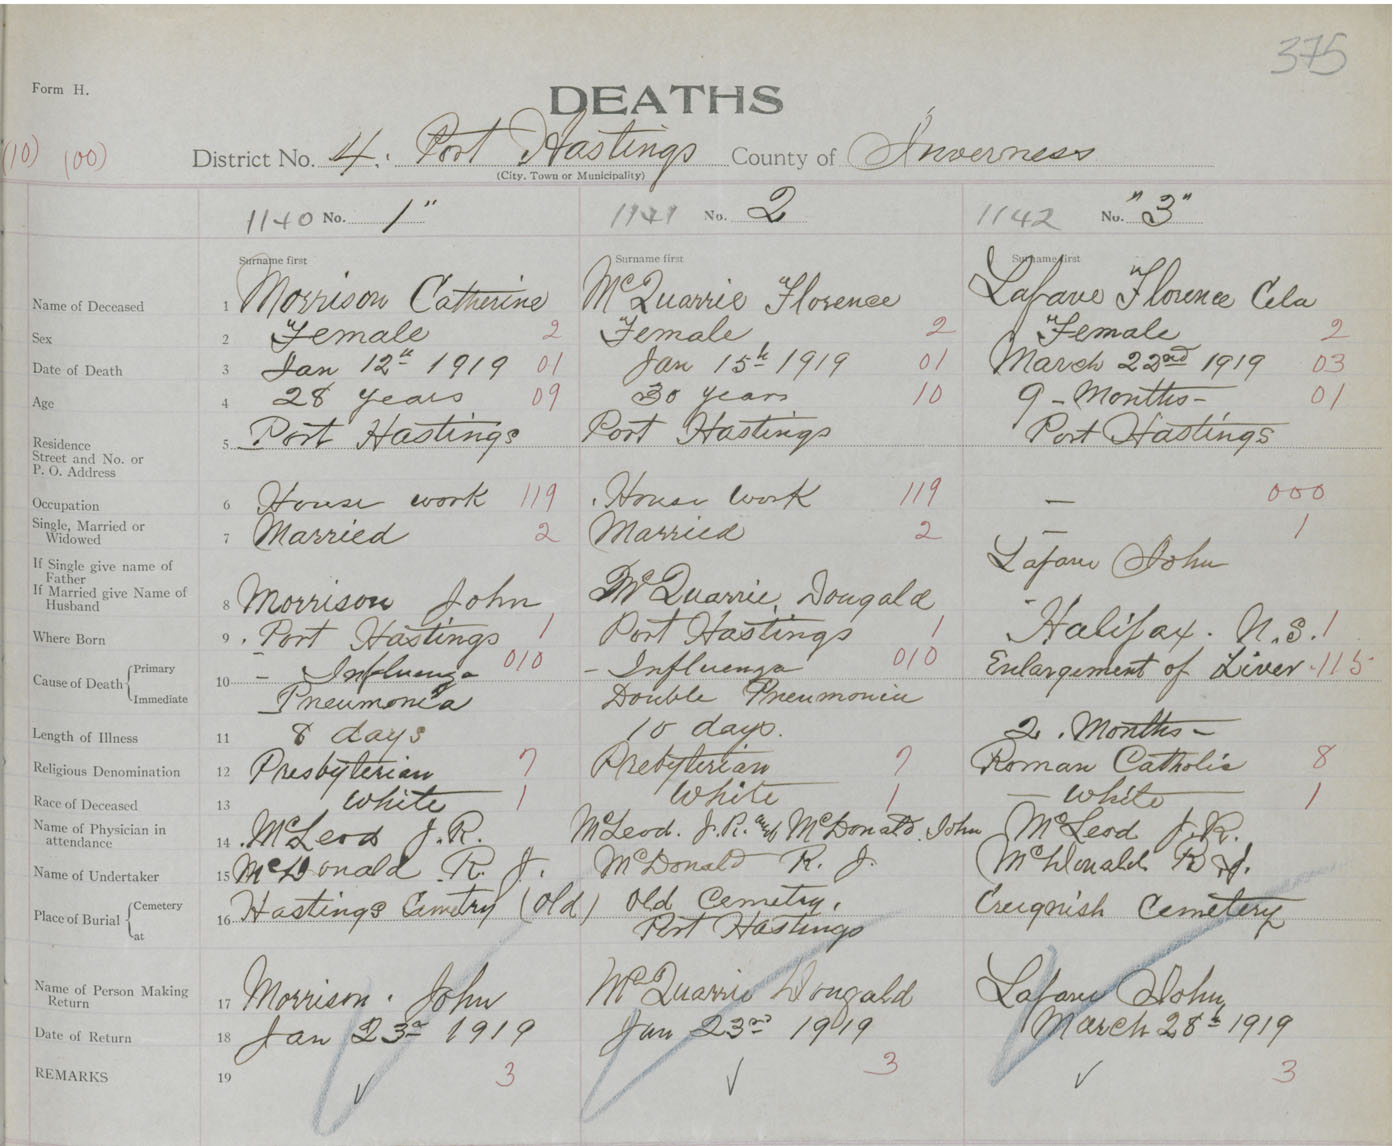 375
Form H.
DEATHS
(10) (00)
District No. 4. Port Hastings County of Inverness
(City, Town or Municipality)
1140 No. 1" 1141 No. 2 1142 No. "3"
Surname first Surname first Surname first
Name of Deceased 1 Morrison Catherine McQuarrie Florence Lafave Florence Cela
Sex 2 Female 2 Female 2 Female 2
Date of Death 3 Jan 12th 1919 01 Jan 15th 1919 01 March 22nd 1919 03
Age 4 28 years 09 30 years 10 9 - Months - 01
Residence
Street and No. or
P. O. Address
5 Port Hastings Port Hastings Port Hastings
Occupation 6 House work 119 House work 119 — 000
Single, Married or
Widowed
7 Married 2 Married 2 — 1
If Single give name of
Father
If Married give Name of
Husband
8 Morrison John McQuarrie, Dougald Lafave John
Where Born 9 Port Hastings 1 Port Hastings 1 Halifax. N.S. 1
Cause of Death { Primary
Immediate
10 – Influenza 010 – Influenza 010 Enlargement of Liver 115
Pneumonia Double Pneumonia
Length of Illness 11 8 days 10 days. 2. Months –
Religious Denomination 12 Presbyterian 7 Presbyterian 7 Roman Catholic 8
Race of Deceased 13 White 1 White 1 — White 1
Name of Physician in
attendance
14 McLeod J.R. McLeod. J.R. and McDonald John McLeod J.R.
Name of Undertaker 15 McDonald R. J. McDonald R. J. McDonald R J.
Place of Burial { Cemetery
at
16 Hastings Cemetry (Old) Old Cemetry, Creignish Cemetery
Port Hastings
Name of Person Making
Return
17 Morrison. John McQuarrie Dougald Lafave John,
Date of Return 18 Jan 23rd 1919 Jan 23rd 1919 March 28th 1919
REMARKS 19 3 3 3